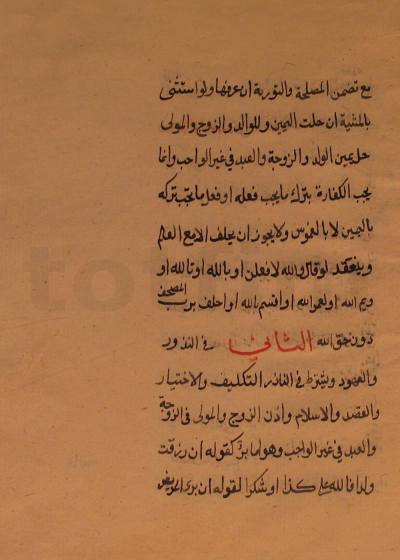 مع تضمن المصلحة والتورية ان عرفها ولو استثنى
بالمشية انحلت اليمين وللوالد والزوج والمولى
حل يمين الولد والزوجة والعبد في غير الواجب وانما
يجب الكفارة بترك ما يجب فعله او فعل ما يجب تركه
باليمين لا بالغموس ولا يجوز ان يحلف الا مع العلم
وينعقد لو قال والله لافعلن او بالله او تالله او
ويم الله او لعمر الله او اقسم بالله او احلف برب المصحف
دون حق الله الثاني في النذور
والعهود ويشترط في الناذر التكليف والاختيار
والقصد والاسلام واذن الزوج والمولى في الزوجة
والعبد في غير الواجب وهو اما بر كقوله ان رزقت
ولدا فالله على كذا او شكرا لقوله ان برئ المريض